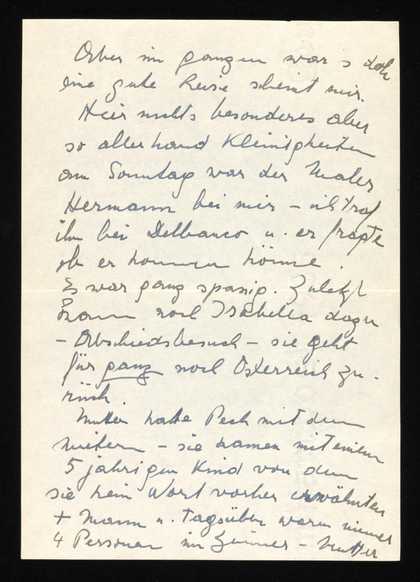 Aber im ganzen war s doch
eine gute Reise scheint mir.
Hier nichts besonderes aber
so allerhand Kleinigkeiten
am Sonntag war der Maler
Hermann bei mir – ich traf
ihn bei Delbanco u. er fragte
ob er kommen könne.
Es war ganz spassig. Zuletzt
kam noch Isabella dazu
– Abschiedsbesuch – sie geht
für ganz nach Österreich zu-
rück.
Mutter hatte Pech mit den
Mietern – sie kamen mit einem
5 jährigen Kind von dem
sie kein Wort vorher erwähnten
+ Mann u. tagsüber waren immer
4 Personen im Zimmer – Mutter